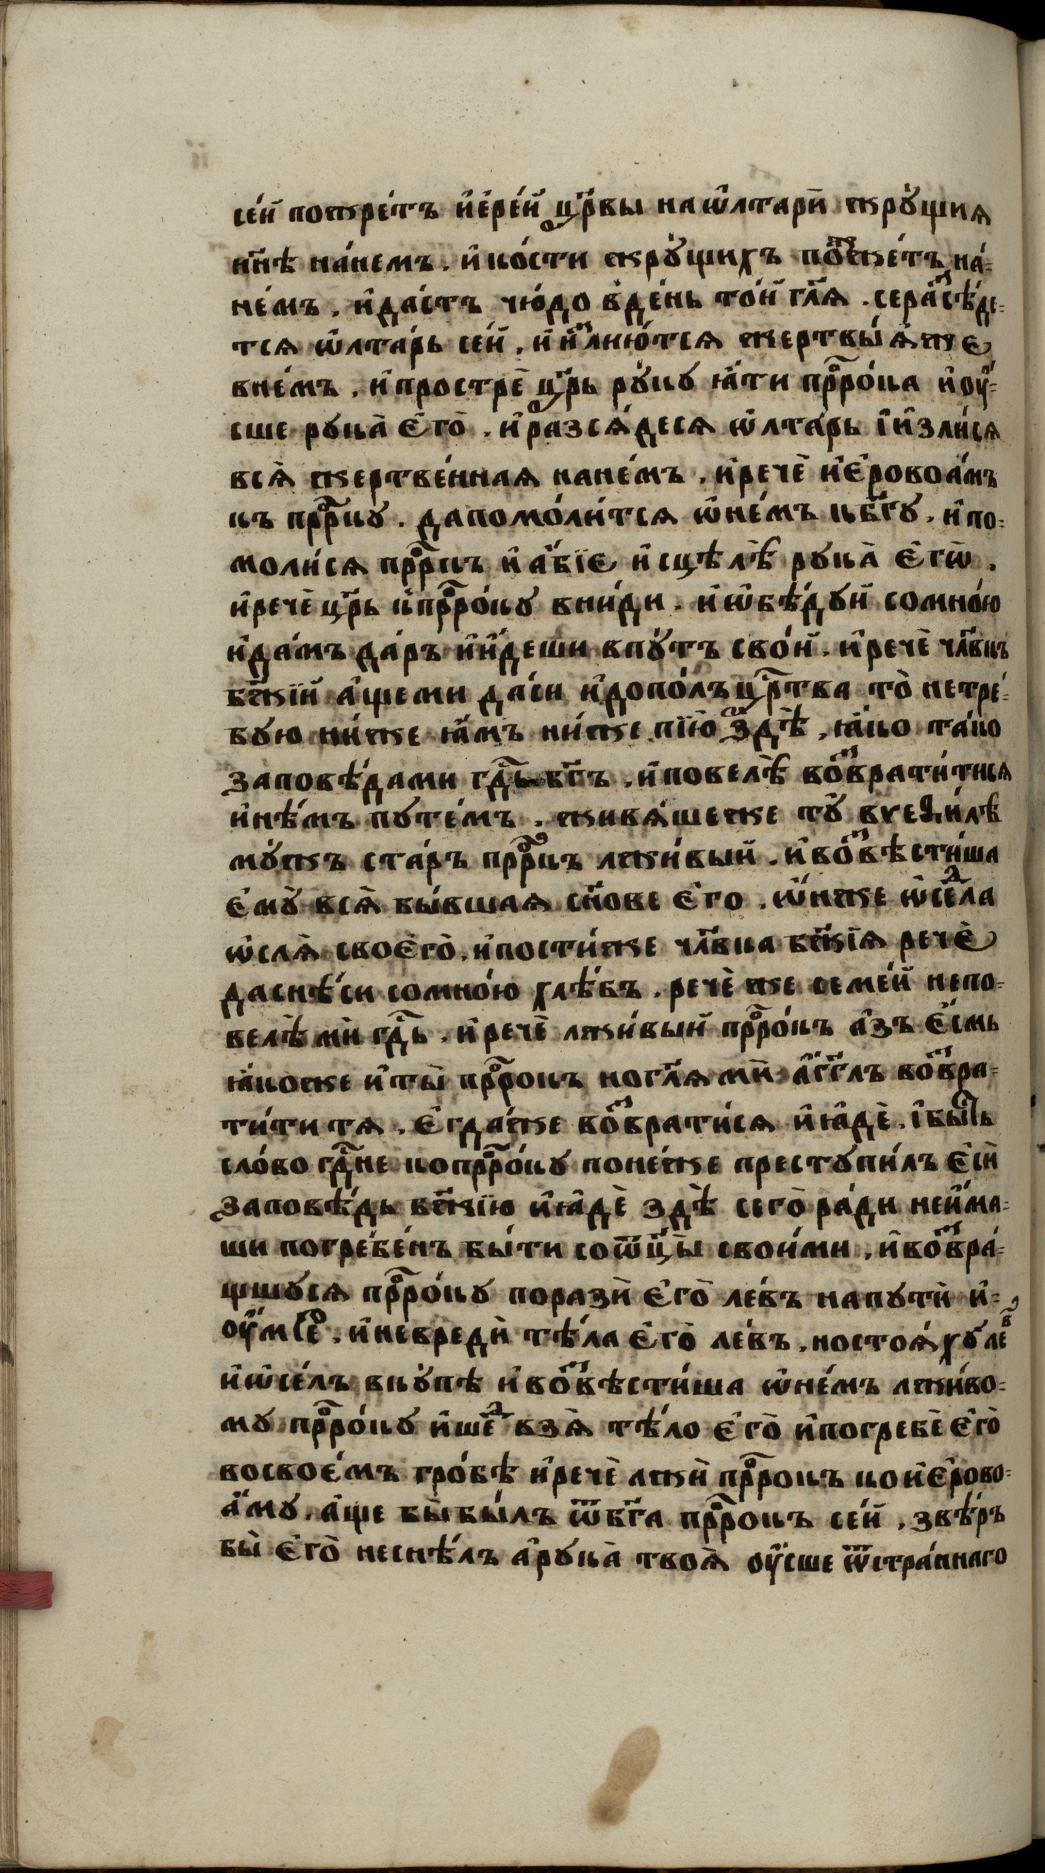 се́й пожре́тъ и҆ере́й цр҃квы на ѡ҆лтари̑ жрꙋ́щиѧ
ны́нѣ на́немъ. и҆ко́сти жрꙋ́щихъ пожже́тъ на́-
не́мъ. и҆да́стъ чю́до в̾де́нь то́й гл҃ѧ. се раⷥсѣ́де-
тсѧ ѡ҆лта́рь се́й, и҆ и҆ⷥлию́тсѧ жертвы̑ ꙗ҆́же
в не́мъ. и҆прострѐ цр҃ь рꙋ́кꙋ ꙗ҆́ти прⷪ҇ро́ка и҆ оу҆́-
сше рꙋка̀ є҆гѡ̀. и҆ разсѧ́десѧ ѡ҆лта́рь і҆ и҆злїѧ́сѧ
всѧ̀ жертве́ннаѧ на не́мъ. и҆речѐ и҆є҆ровоа́мъ
къ прⷪ҇ркꙋ. да помо́литсѧ ѡ҆не́мъ къ бг҃ꙋ. и҆ по-
моли́сѧ прⷪ҇ркъ и҆ а҆́бїє и҆сцѣлѣ̀ рꙋка̀ є҆гѡ̀.
и҆речѐ цр҃ь к̾прⷪ҇ро́кꙋ вни́ди. и҆ ѡ҆бѣ́дꙋй со мно́ю
и҆да́мъ да́ръ и҆ и҆́деши в пꙋ́ть сво́й. и҆речѐ члв҃къ
бж҃їй а҆́ще ми да́си и҆ до по́лъ црⷭ҇тва то̀ не тре́-
бꙋю ни́же ꙗ҆́мъ ни́же пїю̀ здѣ̀, ꙗ҆́ко та́ко
заповѣ́да ми гдⷭ҇ь бг҃ъ. и҆повелѣ̀ воⷥврати́тисѧ
и҆нѣ́мъ пꙋте́мъ. живѧ́ше же тꙋ̀ в веѳи́лѣ
мꙋ́жъ ста́ръ прⷪ҇ркъ лжи́вый. и҆ воⷥвѣсти́ша
є҆мꙋ̀ всѧ̀ бы́вшаѧ сн҃ове є҆го̀. ѡ҆́нже ѡ҆се́дла
ѡ҆слѧ̀ своєго̀. и҆пости́же члв҃ка бж҃їѧ речѐ
да снѣ́си со мно́ю хлѣ́бъ. речѐ же семе́й не по-
велѣ̀ мѝ гдⷭ҇ь. и҆речѐ лжи́вый прⷪ҇ро́къ а҆́зъ є҆́смь
ꙗ҆́коже и҆ ты̀ прⷪ҇рокъ но гл҃ѧ мѝ а҆́гг҃лъ воⷥвра-
ти́ти тѧ. є҆гда́же воⷥврати́сѧ и҆ ꙗ҆дѐ. і҆ бы́сть
сло́во гдⷭ҇не ко прⷪ҇ро́кꙋ поне́же престꙋпи́лъ є҆сѝ
за́повѣ́дь бж҃їю и҆ ꙗ҆дѐ здѣ̀ сего̀ ра́ди не и҆́ма-
ши погребе́нъ бы́ти со ѻ҆тцы̀ свои́ми. и҆ воⷥвра́-
щшꙋсѧ прⷪ҇ро́кꙋ поразѝ є҆го̀ ле́въ на пꙋтѝ и҆-
оу҆мрѐ. и҆ не вредѝ тѣ́ла є҆гѡ̀ ле́въ. но стоѧ́хꙋ леⷡ҇
и҆ ѡ҆се́лъ вкꙋ́пѣ и҆ воⷥвѣсти́ша ѡ҆ не́мъ лжи́во-
мꙋ прⷪ҇ро́кꙋ и҆ шеⷣ взѧ̀ тѣ́ло є҆гѡ̀ и҆ погребѐ є҆го̀
во свое́мъ гро́бѣ и҆речѐ лжи́й прⷪ҇рокъ ко и҆є҆рово-
а́мꙋ. а҆́ще бы̀ бы́лъ ѿ бг҃а прⷪ҇рокъ се́й. звѣ́рь
бы̀ є҆го̀ не снѣ́лъ а҆ рꙋка̀ твоѧ̀ оу҆́сше ѿ стра́ннаго